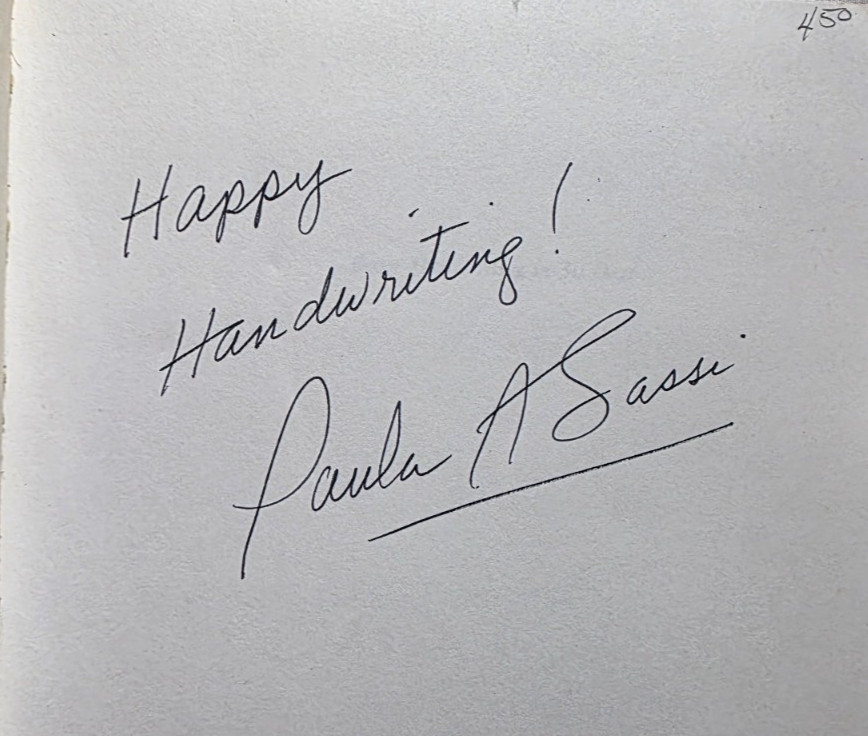 450
Happy
Handwriting!
Paula A Sassi